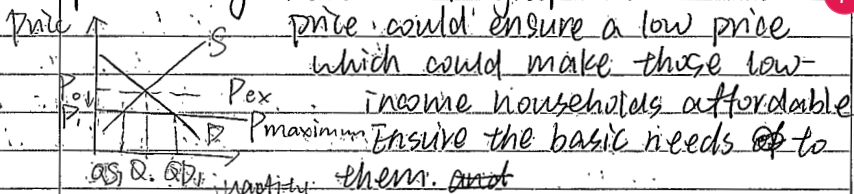 Price
S
P₀
Pex
P₁
Pmaximum
D
QS₁ Q₀ QD₁
price could ensure a low price
which could make those low-
income households affordable
Ensure the basic needs to
them.